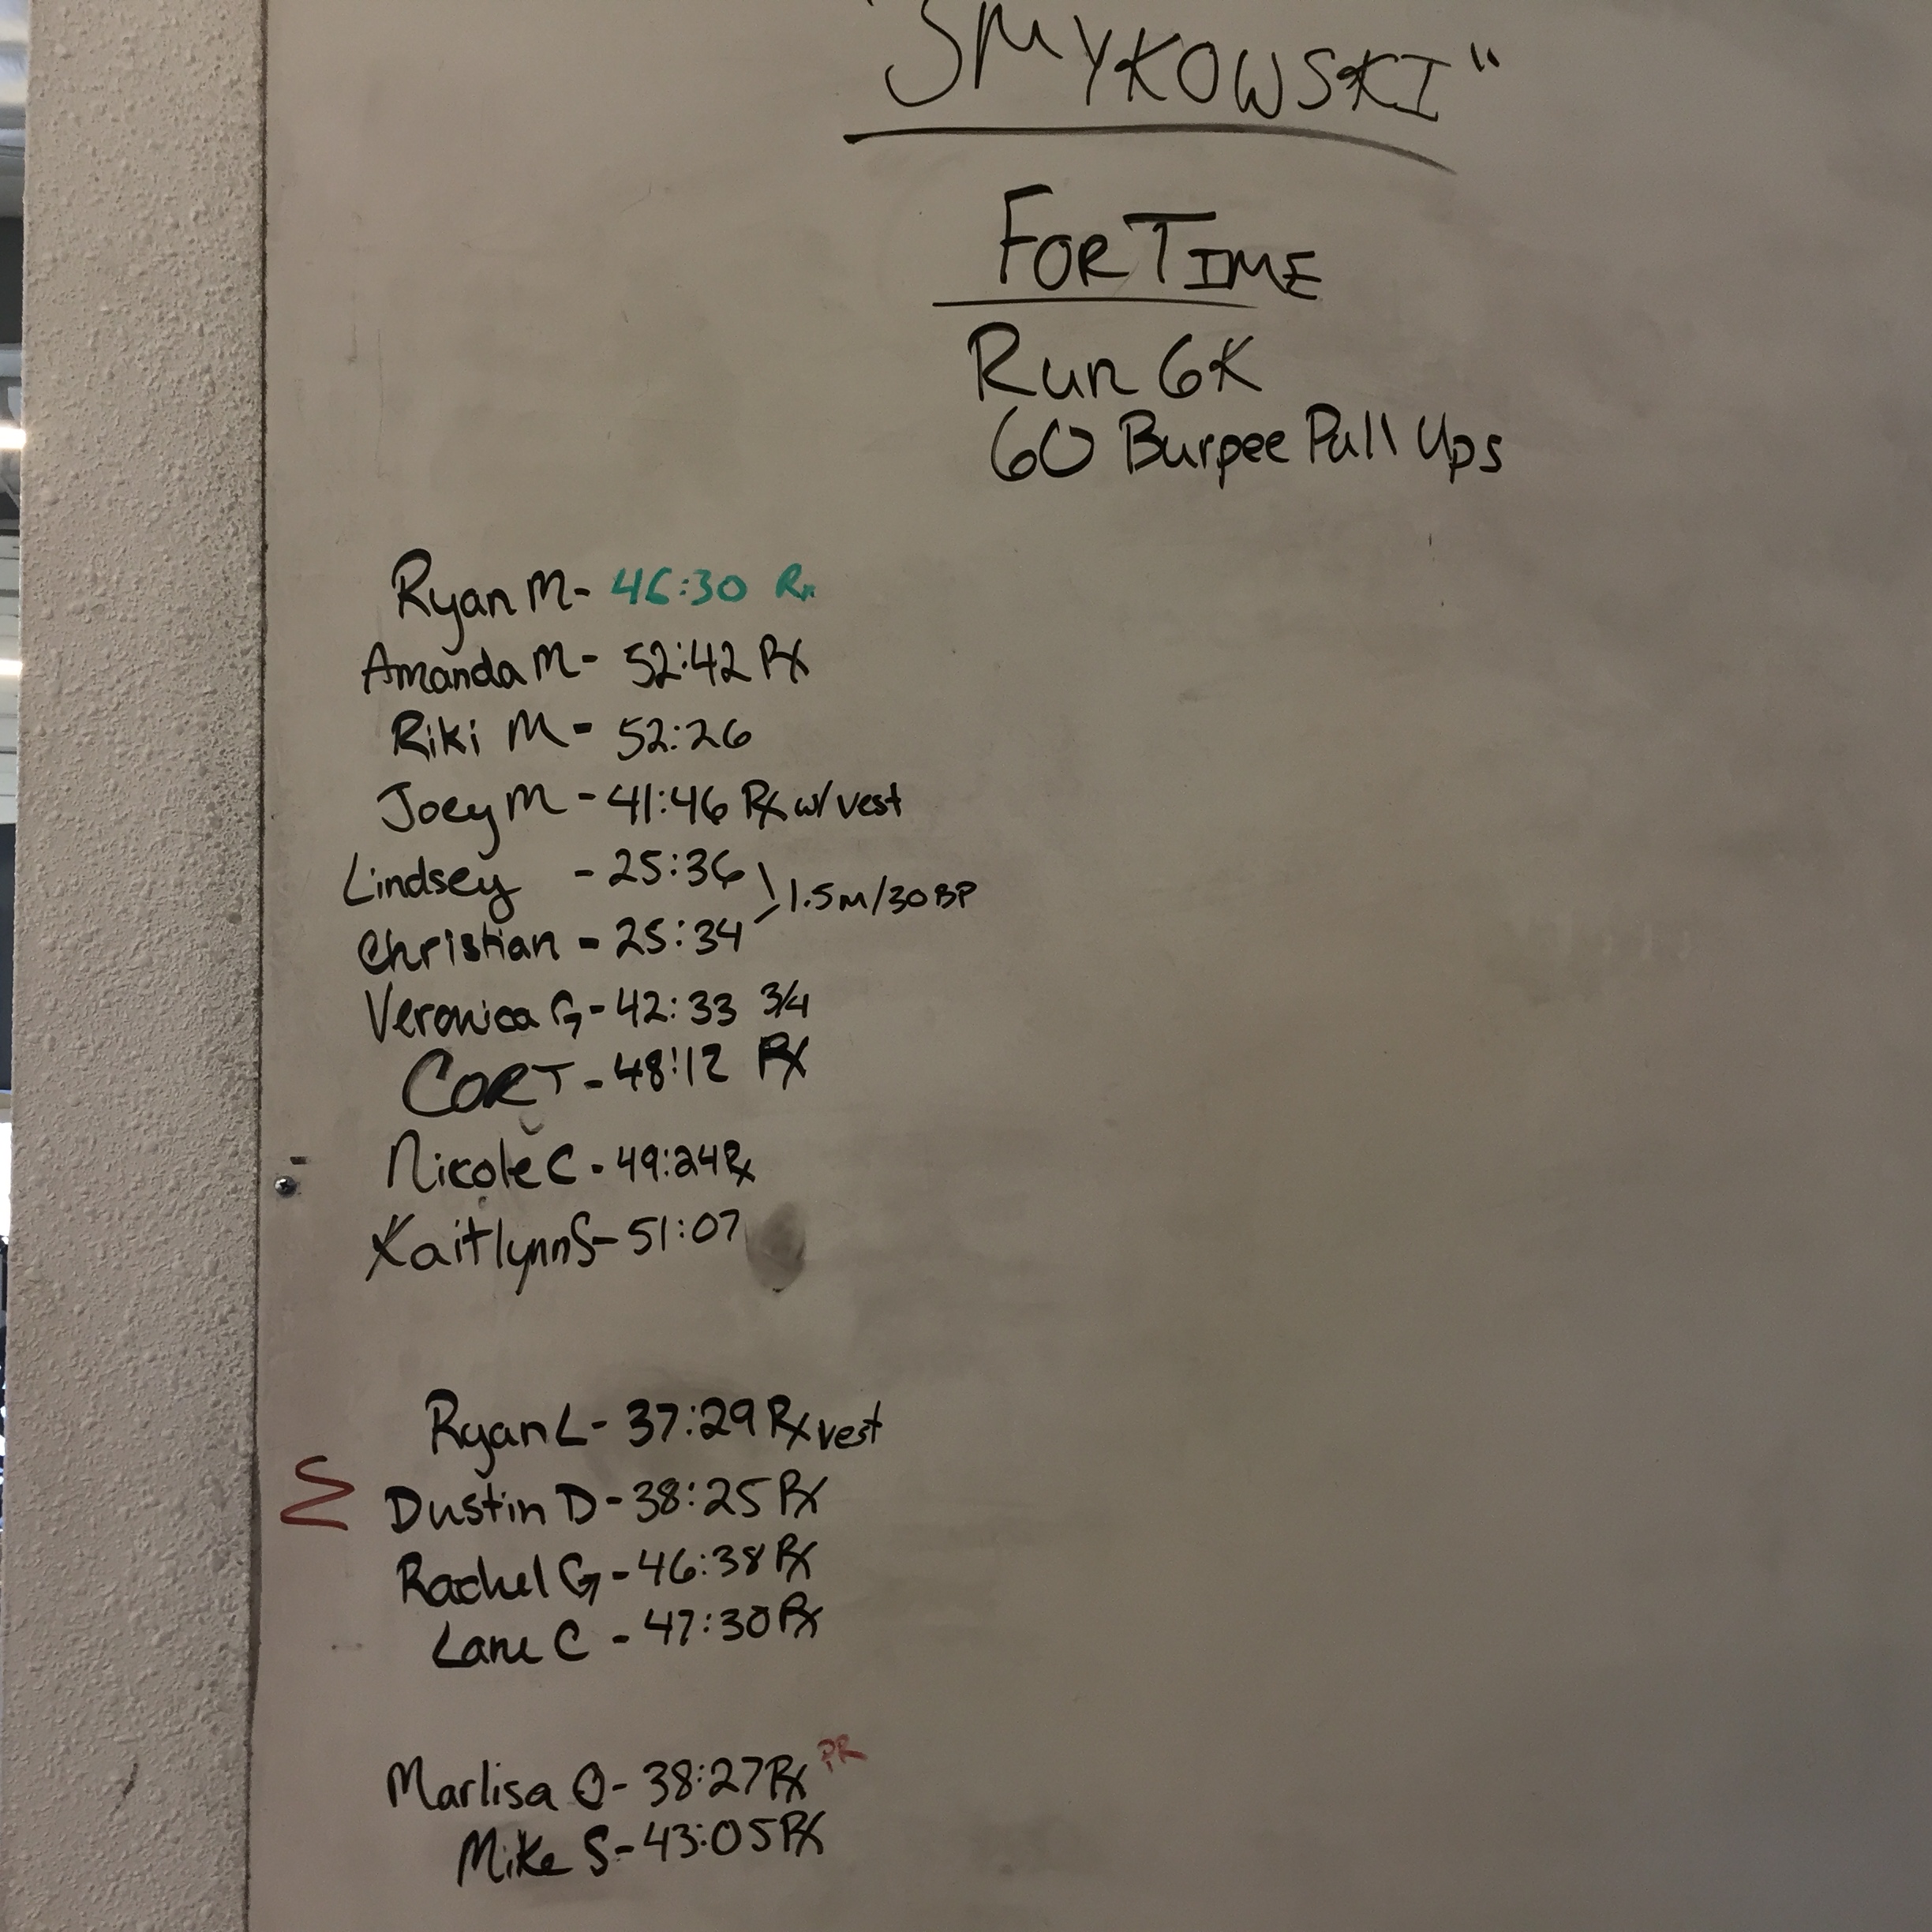 "SMYKOWSKI"
FOR TIME
Run 6K
60 Burpee Pull Ups
Ryan M - 46:30 Rx
Amanda M - 52:42 Rx
Riki M - 52:26
Joey M - 41:46 Rx w/ vest
Lindsey - 25:36
1.5M/30BP
Christian - 25:34
Veronica G - 42:33 3/4
CORT - 48:12 Rx
Nicole C - 49:24 Rx
Kaitlynn S - 51:07
Ryan L - 37:29 Rx vest
Dustin D - 38:25 Rx
Rachel G - 46:38 Rx
Lane C - 47:30 Rx
Marlisa O - 38:27 Rx PR
Mike S - 43:05 Rx